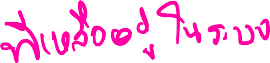 ที่เหลืออยู่ในระบบ